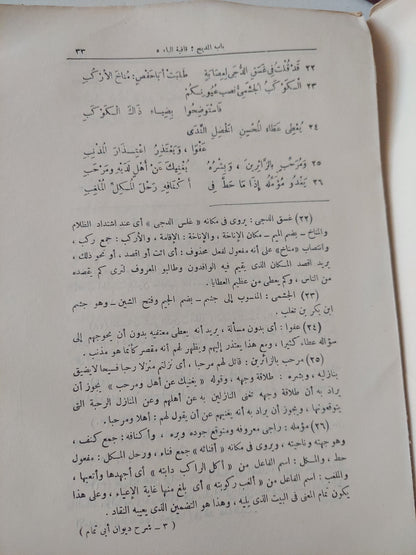 باب المديح ؛ قافية الباء ٥ ٣٣
٢٢ قد قلت في غسق الدجى لعصابة طلبت أبا حفص: مناخ الأركب
٢٣ الكوكب الجشمي نصب عيونكم
فاستوضحوا بضياء ذاك الكوكب
٢٤ يعطى عطاء المحسن الخضل الندى
عفوا ، ويعتذر اعتذار المذنب
٢٥ ومرحب بالزائرين ، وبشره يغنيك عن أهل لديه ومرحب
٢٦ يغدو مؤمله إذا ما حط في أكنافه رحل المكل الملغب
(٢٢) غسق الدجى : يروى في مكانه « غلس الدجى » أى عند اشتداد الظلام
والمناخ ـ بضم الميم ـ مكان الإناخة ، والإناخة : الإقامة ، والأركب : جمع ركب ،
وانتصاب «مناخ» على أنه مفعول لفعل محذوف ؛ أى ائت أو اقصد . أو نحو ذلك ،
يريد اقصد المكان الذى يقيم فيه الوافدون وطالبو المعروف لترى كم يقصده
من الناس ، وكم يعطى من عظيم العطايا .
(٢٣) الجشمى : المنسوب إلى جشم ـ بضم الجيم وفتح الشين ـ وهو جشم
ابن بكر بن تغلب .
(٢٤) عفوا : أى بدون مسألة ، يريد أنه يعطى معتفيه بدون أن يحوجهم إلى
سؤاله عطاء كثيرا ، ومع هذا يعتذر إليهم ويظهر لهم أنه مقصر كأنما هو مذنب .
(٢٥) مرحب بالزائرين : قائل لهم مرحبا ، أى نزلتم منزلا رحبا فسيحا لا يضيق
بنازليه ، وبشره : طلاقة وجهه ، وقوله « يغنيك عن أهل ومرحب » يجوز أن
يراد به أن طلاقة وجهه تغنى النازلين به عن أهلهم وعن المنازل الرحبة التى
يتوقعونها ، ويجوز أن يراد به أنه يغنيهم عن أن يقول لهم : أهلا ومرحبا .
(٢٦) مؤمله : راجى معروفه ومتوقع جوده وبره ، وأكنافه : جمع كنف ،
وهو جهته وناحيته ، ويروى في مكانه « أفنائه » جمع فناء ، ورحل المكل : مفعول
حط ، والمكل : اسم الفاعل من « أكل الراكب دابته » أى أجهدها وأتعبها ،
والملغب : اسم الفاعل من « ألغب ركوبته » أى بلغ منها غاية الإعياء ، وعلى هذا
يكون تمام المعنى فى البيت الذى يليه ، وهذا هو التضمين الذى يعيبه النقاد .
( ٣ ـ شرح ديوان أبي تمام )